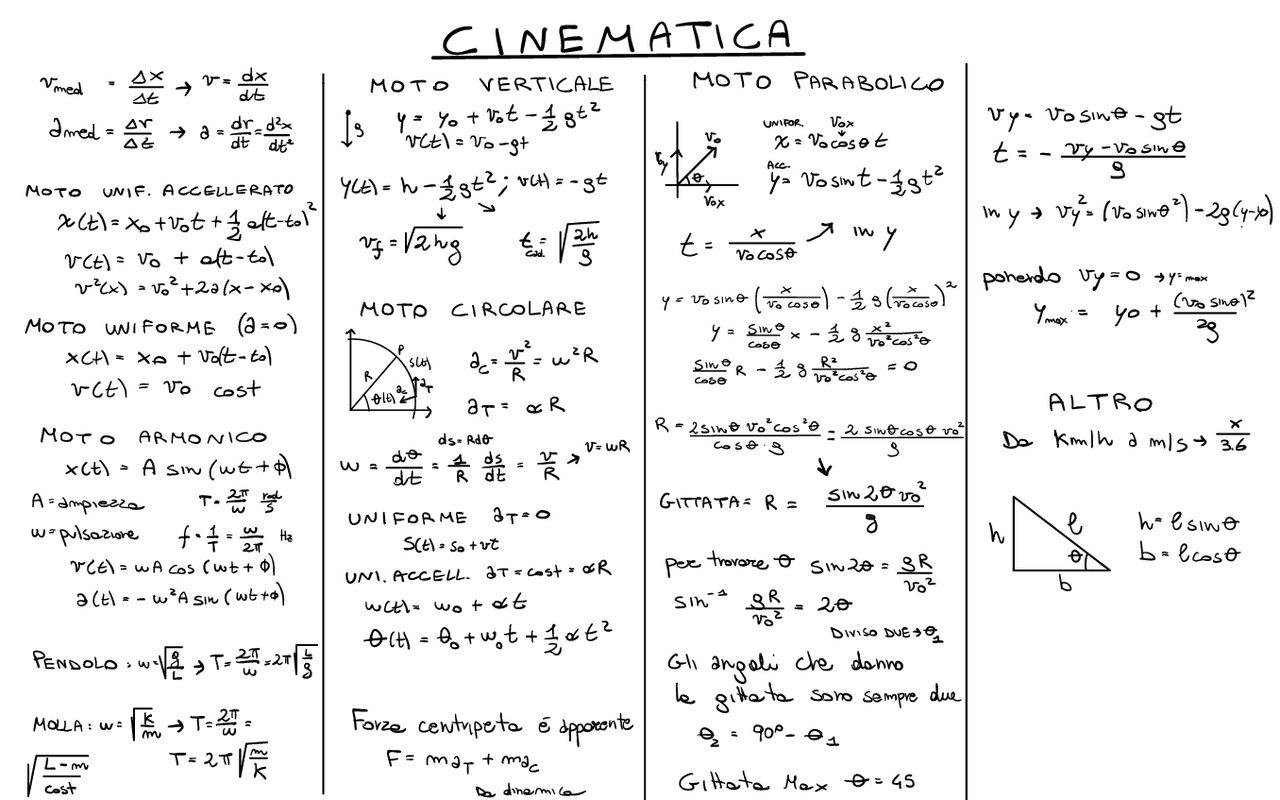 CINEMATICA
v_med = Δx/Δt → v = dx/dt
a med = Δv/Δt → a = dv/dt = d²x/dt²
MOTO UNIF. ACCELLERATO
x(t) = x0 + v0t + 1/2 a(t-t0)²
v(t) = v0 + a(t-t0)
v²(x) = v0² + 2a(x-x0)
MOTO UNIFORME (a=0)
x(t) = x0 + v0(t-t0)
v(t) = v0 cost
MOTO ARMONICO
x(t) = A sin(wt+ϕ)
A = ampiezza T = 2π/w rad/s
w = pulsazione f = 1/T = w/2π Hz
v(t) = wA cos(wt+ϕ)
a(t) = -w²A sin(wt+ϕ)
PENDOLO: w=√(g/L) → T=2π/w=2π√(L/g)
MOLLA: w=√(k/m) → T=2π/w=
T=2π√(m/k)
√((L-m)/cost)
MOTO VERTICALE
g
y = y0 + v0t - 1/2 gt²
v(t) = v0 - gt
y(t) = h - 1/2 gt²; v(t) = -gt
↓ ↘
v_f = √(2hg) t_cad. = √(2h/g)
MOTO CIRCOLARE
P
S(t)
R
θ(t) a_c a_T
a_c = v²/R = w²R
a_T = αR
ds=Rdθ
w = dθ/dt = 1/R ds/dt = v/R → v=wR
UNIFORME a_T=0
S(t) = s0 + vt
UNI. ACCELL. a_T = cost = αR
w(t) = w0 + αt
θ(t) = θ0 + w0t + 1/2 αt²
Forza centripeta é apparente
F = ma_T + ma_c
Da dinamica
MOTO PARABOLICO
v0
v_y
θ
v0x
UNIFOR v0x
x = v0 cosθ t
ACC.
y = v0 sin t - 1/2 gt²
t = x/(v0 cosθ) ↗ IN y
y = v0 sinθ (x/(v0 cosθ)) - 1/2 g(x/(v0 cosθ))²
y = sinθ/cosθ x - 1/2 g x²/(v0²cos²θ)
sinθ/cosθ R - 1/2 g R²/(v0²cos²θ) = 0
R = (2sinθ v0²cos²θ)/(cosθ·g) = (2 sinθcosθ v0²)/g
↓
GITTATA = R = (sin2θ v0²)/g
per trovare θ sin2θ = gR/v0²
sin⁻¹ gR/v0² = 2θ
DIVISO DUE → θ1
Gli angoli che danno
la gittata sono sempre due
θ2 = 90° - θ1
Gittata Max θ = 45
vy = v0 sinθ - gt
t = - (vy - v0 sinθ)/g
IN y → vy² = (v0 sinθ²) - 2g(y-y0)
ponendo vy=0 → y=max
y_max = y0 + (v0 sinθ)²/2g
ALTRO
Da Km/h a m/s → x/3.6
h l θ b
h = l sinθ
b = l cosθ